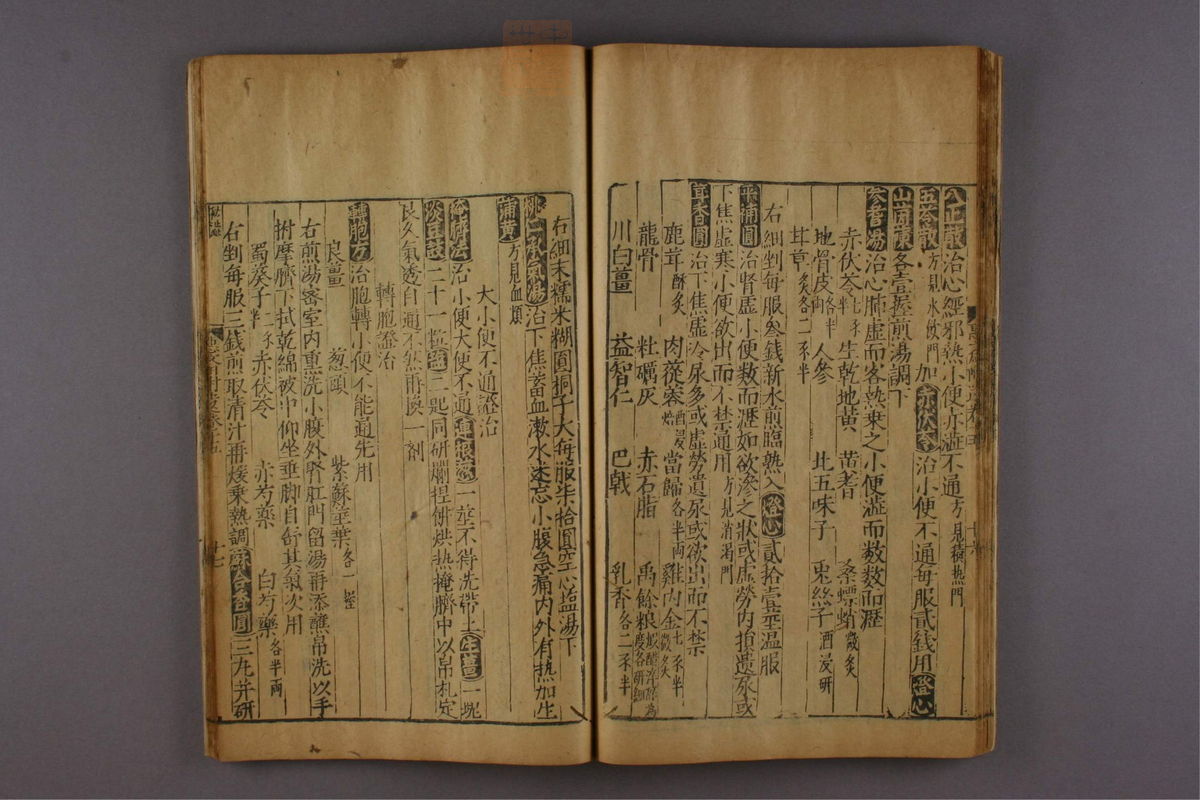 八正散治心經邪熱小便赤澁不通方見積熱門
五苓散方見水飲門加赤茯苓治小便不通每服貳錢用燈心
各壹握煎湯調下
參耆湯治心肺虛而客熱乗之小便澁而数数而瀝
赤伏苓七分半 生乾地黃 黄耆 桑螵蛸微炙
地骨皮各半兩 人參 北五味子 兎絲子酒浸研
茸草炙各二不半
右細剉每服叁錢新水煎臨熟入燈心貳拾壹莖温服
平補圓治腎虛小便数而瀝如欲滲之狀或虛勞内損遺尿或
下焦虛寒小便欲出而不禁通用方見消渴門
茸香圓治下焦虛冷尿多或虛勞遺尿或欲出而不禁
鹿茸酥炙 肉蓯蓉酒浸焙 當歸各半兩 雞内金微炙七不半
龍骨 牡礪灰 赤石脂 禹餘粮
川白薑 益智仁 巴戟 乳香各二不半
右細末糯米糊圓桐子大每服柒拾圓空心盐湯下
桃仁承氣湯治下焦蓄血漱水迷忘小腹急痛内外有热加生
蒲黄方見血類
大小便不通證治
治小便大便不通連根葱一莖不得洗帶土生薑一塊
淡豆豉二十一粒盐二匙同研爛捏餅烘热掩臍中以帛札定
良久氣透自通不然再換一剤
轉胞證治
轉胞方治胞轉小便不能通先用
良薑 葱頭 紫蘇莖葉各一握
右煎湯密室内熏洗小腹外腎肛門留湯再添蘸帛洗以手
拊摩臍下拭乾綿被中仰坐垂脚自舒其氣次用
蜀葵子 赤伏苓 赤芍藥 白芍藥各半两
右剉每服三錢煎取清汁再煖乗熱調蘇合香圓三丸并研